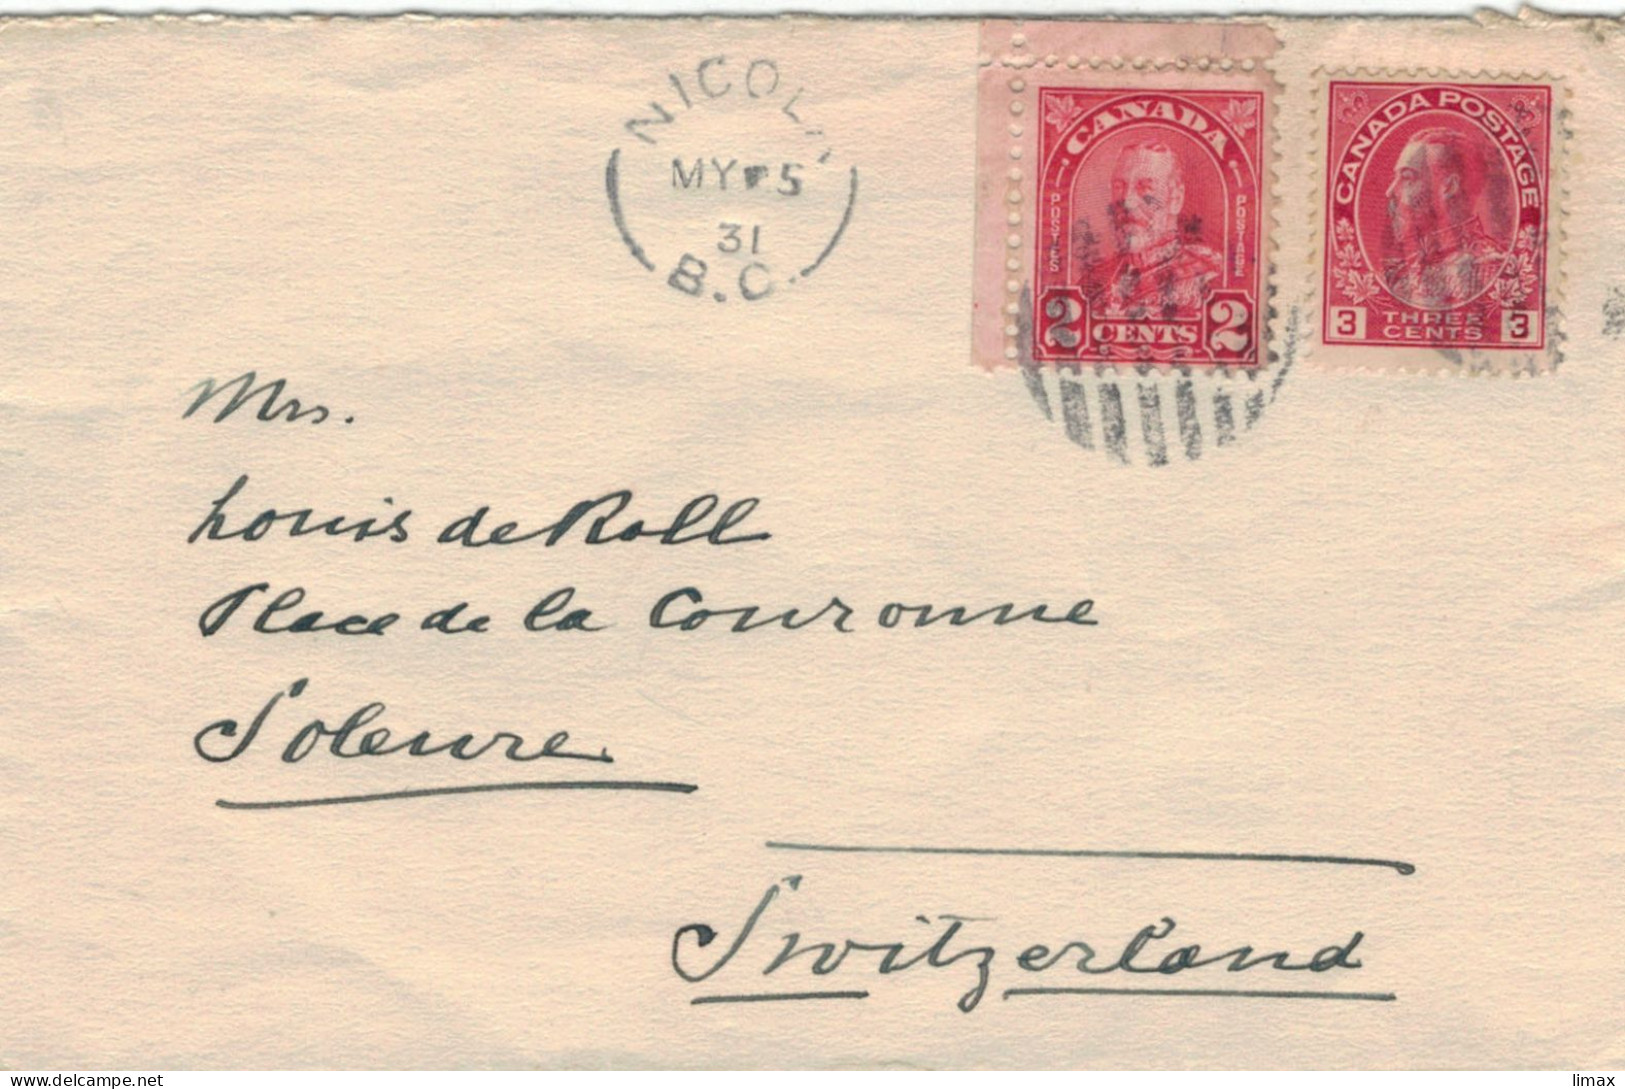 NICOLA
MY 5
31
B.C.
CANADA
POSTES
POSTAGE
2 CENTS 2
CANADA POSTAGE
3 THREE CENTS 3
Mrs.
Louis de Roll
Place de la Couronne
Soleure
Switzerland
limax